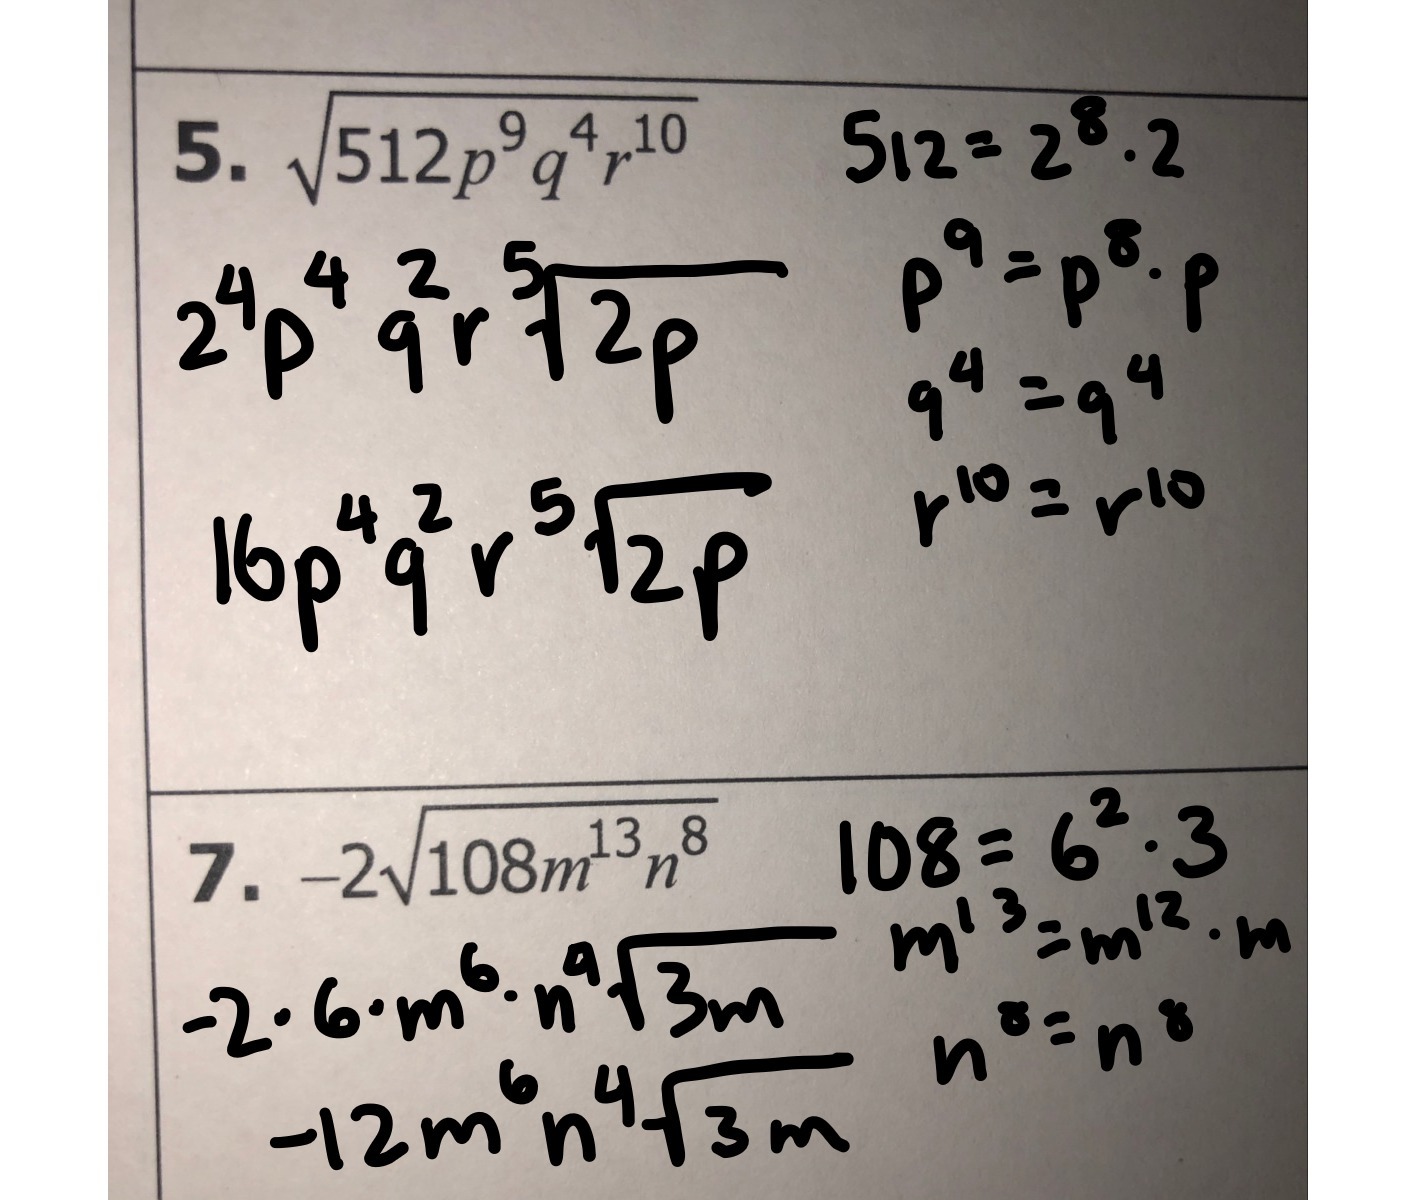 5. √512p⁹q⁴r¹⁰
512 = 2⁸·2
p⁹ = p⁸·p
2⁴p⁴q²r⁵√2p
q⁴ = q⁴
r¹⁰ = r¹⁰
16p⁴q²r⁵√2p
7. –2√108m¹³n⁸
108 = 6²·3
m¹³ = m¹²·m
-2·6·m⁶·n⁴√3m
n⁸ = n⁸
-12m⁶n⁴√3m